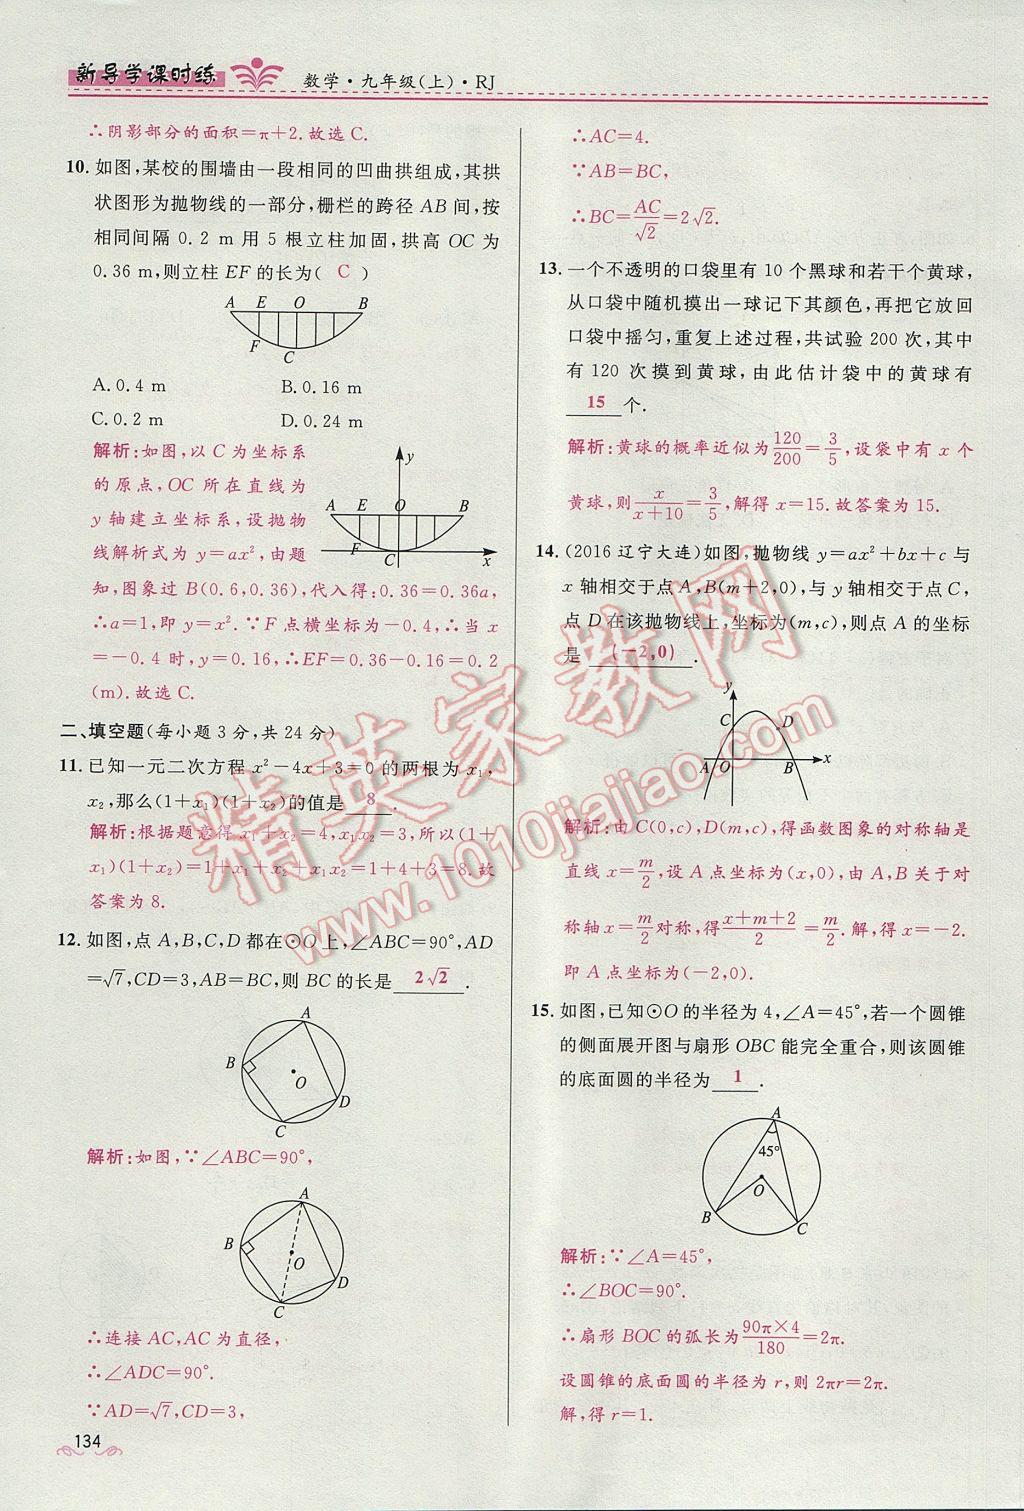 新导学课时练
数学·九年级(上)·RJ
∴阴影部分的面积=π+2.故选C.
10. 如图,某校的围墙由一段相同的凹曲拱组成,其拱
状图形为抛物线的一部分,栅栏的跨径 AB 间,按
相同间隔 0.2 m 用 5 根立柱加固,拱高 OC 为
0.36 m,则立柱 EF 的长为( C )
A E O B
F
C
A. 0.4 m B. 0.16 m
C. 0.2 m D. 0.24 m
解析:如图,以 C 为坐标系
的原点,OC 所在直线为
y 轴建立坐标系,设抛物
线解析式为 y=ax²,由题
y
A E O B
F
C x
知,图象过 B(0.6,0.36),代入得:0.36=0.36a,
∴a=1,即 y=x².∵F 点横坐标为-0.4,∴当 x
=-0.4 时,y=0.16,∴EF=0.36-0.16=0.2
(m).故选C.
二、填空题(每小题 3 分,共 24 分)
11. 已知一元二次方程 x²-4x+3=0 的两根为 x₁,
x₂,那么(1+x₁)(1+x₂)的值是 8 .
解析:根据题意得 x₁+x₂=4,x₁x₂=3,所以(1+
x₁)(1+x₂)=1+x₁+x₂+x₁x₂=1+4+3=8.故
答案为 8.
12. 如图,点 A,B,C,D 都在⊙O 上,∠ABC=90°,AD
=√7,CD=3,AB=BC,则 BC 的长是 2√2 .
A
B
O
D
C
解析:如图,∵∠ABC=90°,
A
B
O
D
C
∴连接 AC,AC 为直径,
∴∠ADC=90°.
∵AD=√7,CD=3,
134
∴AC=4.
∵AB=BC,
∴BC=AC/√2=2√2.
13. 一个不透明的口袋里有 10 个黑球和若干个黄球,
从口袋中随机摸出一球记下其颜色,再把它放回
口袋中摇匀,重复上述过程,共试验 200 次,其中
有 120 次摸到黄球,由此估计袋中的黄球有
15 个.
解析:黄球的概率近似为120/200=3/5,设袋中有 x 个
黄球,则x/(x+10)=3/5,解得 x=15.故答案为 15.
14. (2016 辽宁大连)如图,抛物线 y=ax²+bx+c 与
x 轴相交于点 A,B(m+2,0),与 y 轴相交于点 C,
点 D 在该抛物线上,坐标为(m,c),则点 A 的坐标
是 (-2,0) .
y
C D
A O B x
解析:由 C(0,c),D(m,c),得函数图象的对称轴是
直线 x=m/2,设 A 点坐标为(x,0),由 A,B 关于对
称轴 x=m/2对称,得(x+m+2)/2=m/2.解,得 x=-2.
即 A 点坐标为(-2,0).
15. 如图,已知⊙O 的半径为 4,∠A=45°,若一个圆锥
的侧面展开图与扇形 OBC 能完全重合,则该圆锥
的底面圆的半径为 1 .
A
45°
O
B
C
解析:∵∠A=45°,
∴∠BOC=90°.
∴扇形 BOC 的弧长为(90π×4)/180=2π.
设圆锥的底面圆的半径为 r,则 2πr=2π.
解,得 r=1.
精英家教网
www.1010jiajiao.com